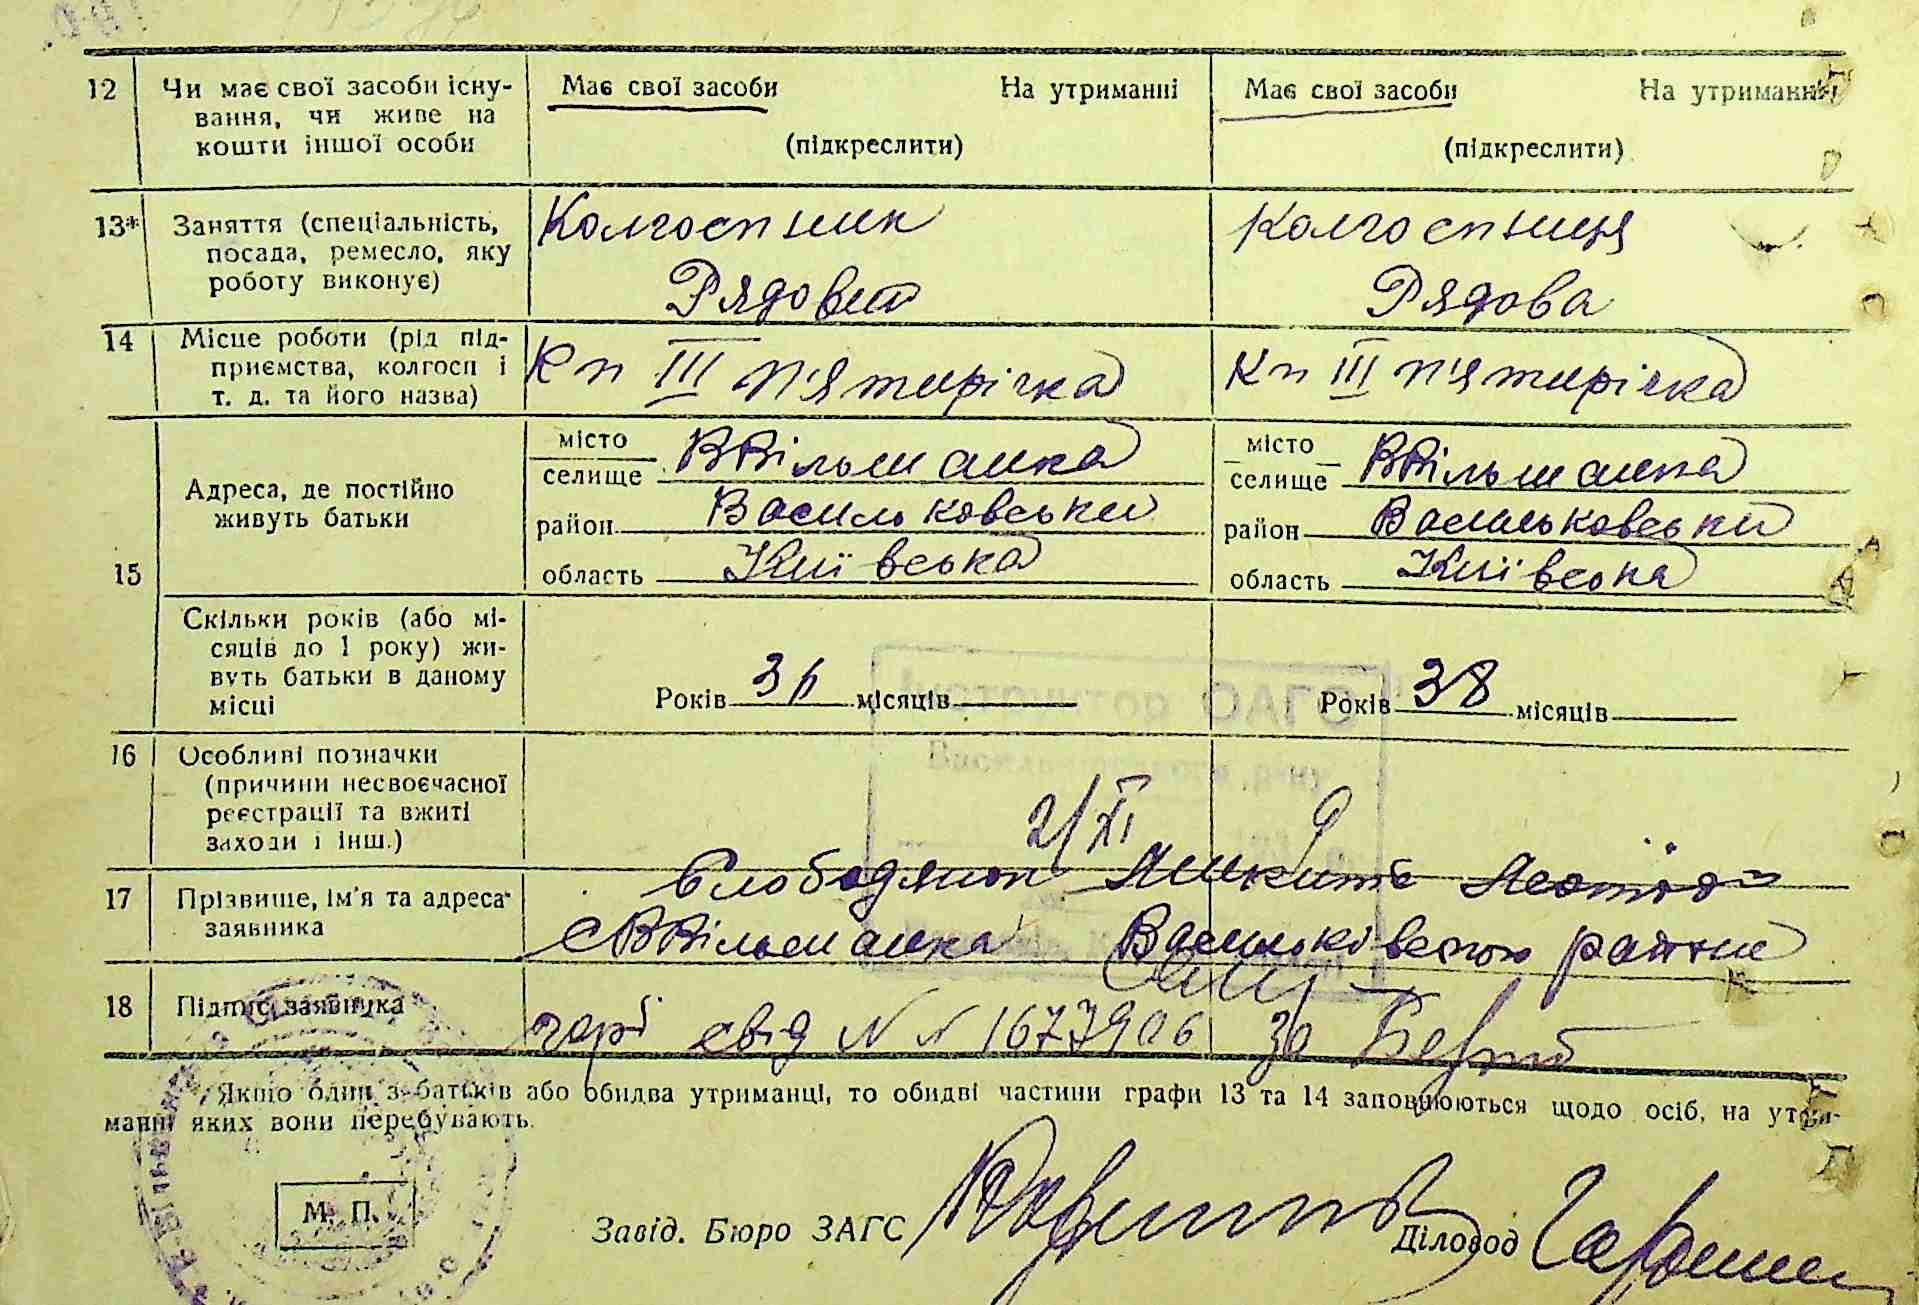 12 Чи має свої засоби існу- Має свої засоби На утриманні Має свої засоби На утриманні
вання, чи живе на
кошти іншої особи (підкреслити) (підкреслити)
13* Заняття (спеціальність, Колгоспник Колгоспниця
посада, ремесло, яку
роботу виконує) Рядовий Рядова
14 Місце роботи (рід під- Кп III П'ятирічка Кп III П'ятирічка
приємства, колгосп і
т. д. та його назва)
15 Адреса, де постійно місто
селище ВВільшанка місто
селище ВВільшанка
живуть батьки район Васильковський район Васильковський
область Київська область Київська
Скільки років (або мі-
сяців до 1 року) жи-
вуть батьки в даному Років 36 місяців Років 38 місяців
місці
Інспектор ЗАГС
16 Особливі позначки
(причини несвоєчасної
реєстрації та вжиті 2/XI
заходи і інш.)
17 Прізвище, ім'я та адреса Слободянюк
заявника с ВВільшанка Васильківського району
18 Підпис заявника
свід N 1677906 за
Якщо один з батьків або обидва утриманці, то обидві частини графи 13 та 14 заповнюються щодо осіб, на утри-
манні яких вони перебувають.
М. П.
Завід. Бюро ЗАГС Діловод